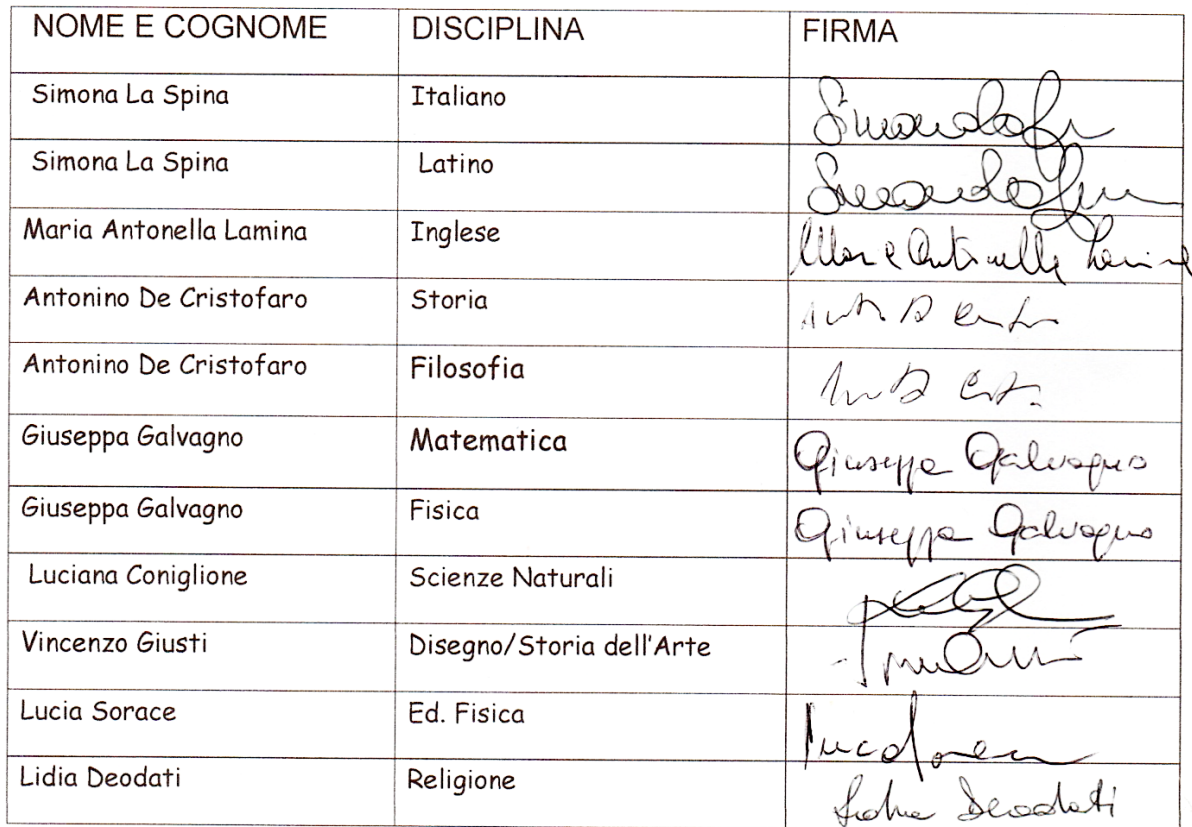 NOME E COGNOME DISCIPLINA FIRMA
Simona La Spina Italiano
Simona La Spina Latino
Maria Antonella Lamina Inglese Maria Antonella Lamina
Antonino De Cristofaro Storia
Antonino De Cristofaro Filosofia
Giuseppa Galvagno Matematica Giuseppa Galvagno
Giuseppa Galvagno Fisica Giuseppa Galvagno
Luciana Coniglione Scienze Naturali
Vincenzo Giusti Disegno/Storia dell'Arte
Lucia Sorace Ed. Fisica
Lidia Deodati Religione Lidia Deodati